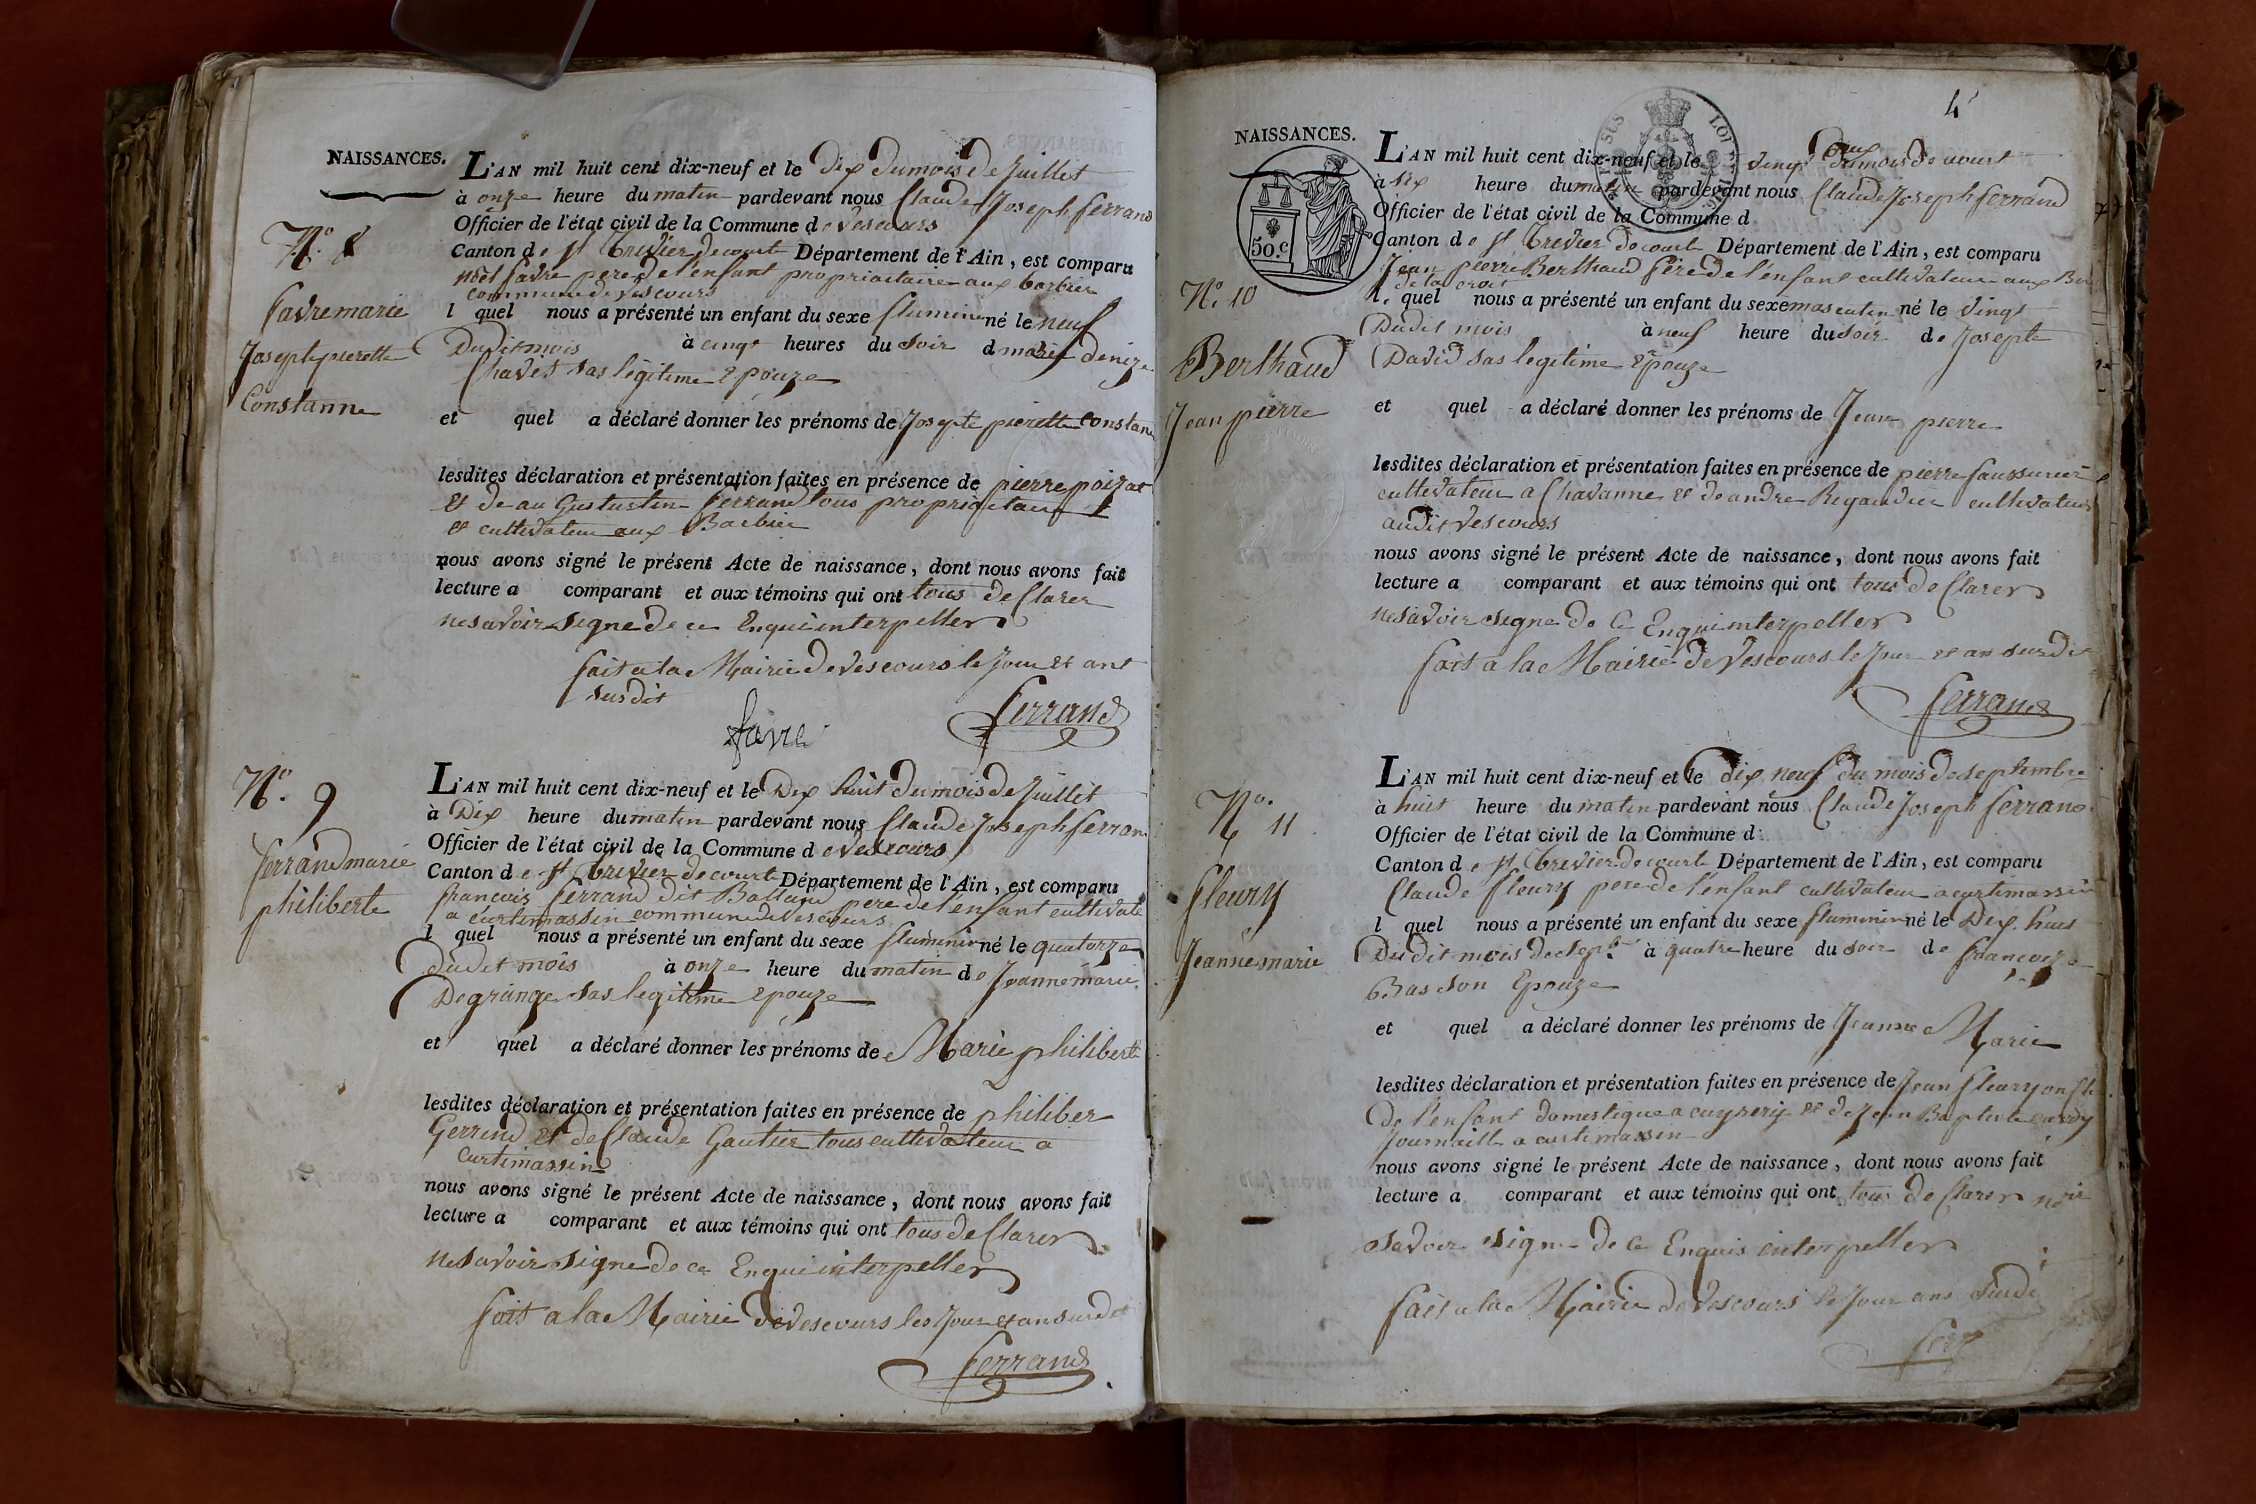 NAISSANCES.
N.º 8
favre marie
Josephpierette
Constanne
L'AN mil huit cent dix-neuf et le dix du mois de Juillet
à onze heure du matin pardevant nous Claude Joseph ferrand
Officier de l'état civil de la Commune de vescours
Canton de st trivier de court Département de l'Ain, est comparu
noël favre pere de l'enfant propriactaire aux barbier
commune de vescours
l quel nous a présenté un enfant du sexe fluminin né le neuf
Dudit mois à cinqt heures du soir d marie denize
Chavet sas légitime Epouze
et quel a déclaré donner les prénoms de Josepte pierette Constan
lesdites déclaration et présentation faites en présence de pierre poizat
et de au Gustustin ferrand tous propriaitair
et cultivateur aux Barbier
nous avons signé le présent Acte de naissance, dont nous avons fait
lecture a comparant et aux témoins qui ont tous de Clarer
ne savoir signe de ce Enqui interpeller
fait a la Mairie de vescours le Jour et ant
sus dit
favre
ferrand
N.º 9
ferrand marie
philiberte
L'AN mil huit cent dix-neuf et le Dix huit du mois de Juillet
à Dix heure du matin pardevant nous Claude Joseph ferran
Officier de l'état civil de la Commune de vescours
Canton de st trivier de court Département de l'Ain, est comparu
francois ferrand dit Balland pere de l'enfant cultivate
a curtimassin commune de vescours
l quel nous a présenté un enfant du sexe fluminin né le quatorze
dudit mois à onze heure du matin de Jeanne marie
Degrange sas legitime epouze
et quel a déclaré donner les prénoms de Marie philiberte
lesdites déclaration et présentation faites en présence de philiber
Gerrend et de Claude Gautier tous cultivateur a
curtimassin
nous avons signé le présent Acte de naissance, dont nous avons fait
lecture a comparant et aux témoins qui ont tous de Clarer
ne savoir signe de ce Enqui interpeller
fait a la Mairie de vescours les Jour et an sus dit
ferrand
4
NAISSANCES.
50.c
LOI
N.º 10
Berthaud
Jean pierre
L'AN mil huit cent dix-neuf et le vingt deux du mois de aoust
à six heure du matin pardevant nous Claude Joseph ferrand
Officier de l'état civil de la Commune d
Canton de st trivier de court Département de l'Ain, est comparu
Jean pierre Berthaud pére de l'enfant cultivateur aux
de la croit
l quel nous a présenté un enfant du sexe masculin né le vingt
Dudit mois à neuf heure du soir de Josepte
David sas legitime Epouze
et quel a déclaré donner les prénoms de Jean pierre
lesdites déclaration et présentation faites en présence de pierre faussurier
cultivateur a Chavanne et de andre Regaudier cultivateur
audit vescours
nous avons signé le présent Acte de naissance, dont nous avons fait
lecture a comparant et aux témoins qui ont tous de Clarer
ne savoir signe de Ce Enqui interpeller
fait a la Mairie de vescours le Jour et an sus dit
ferrand
N.º 11
fleury
Jeanne marie
L'AN mil huit cent dix-neuf et le dix neuf du mois de septembre
à huit heure du matin pardevant nous Claude Joseph ferrand
Officier de l'état civil de la Commune d
Canton de st trivier de court Département de l'Ain, est comparu
Claude fleury pere de l'enfant cultivateur a curtimassin
l quel nous a présenté un enfant du sexe fluminin né le Dix huit
Dudit mois de sept.e à quatre heure du soir de francoize
Bas son Epouze
et quel a déclaré donner les prénoms de Jeanne Marie
lesdites déclaration et présentation faites en présence de Jean fleury oncle
de l'enfant domestique a cuysery et de Jean Baptiste
Journaill a curtimassin
nous avons signé le présent Acte de naissance, dont nous avons fait
lecture a comparant et aux témoins qui ont tous de Clarer
savoir signe de Ce Enquis interpeller
fait a la Mairie de vescours le Jour ans susdi
ferr